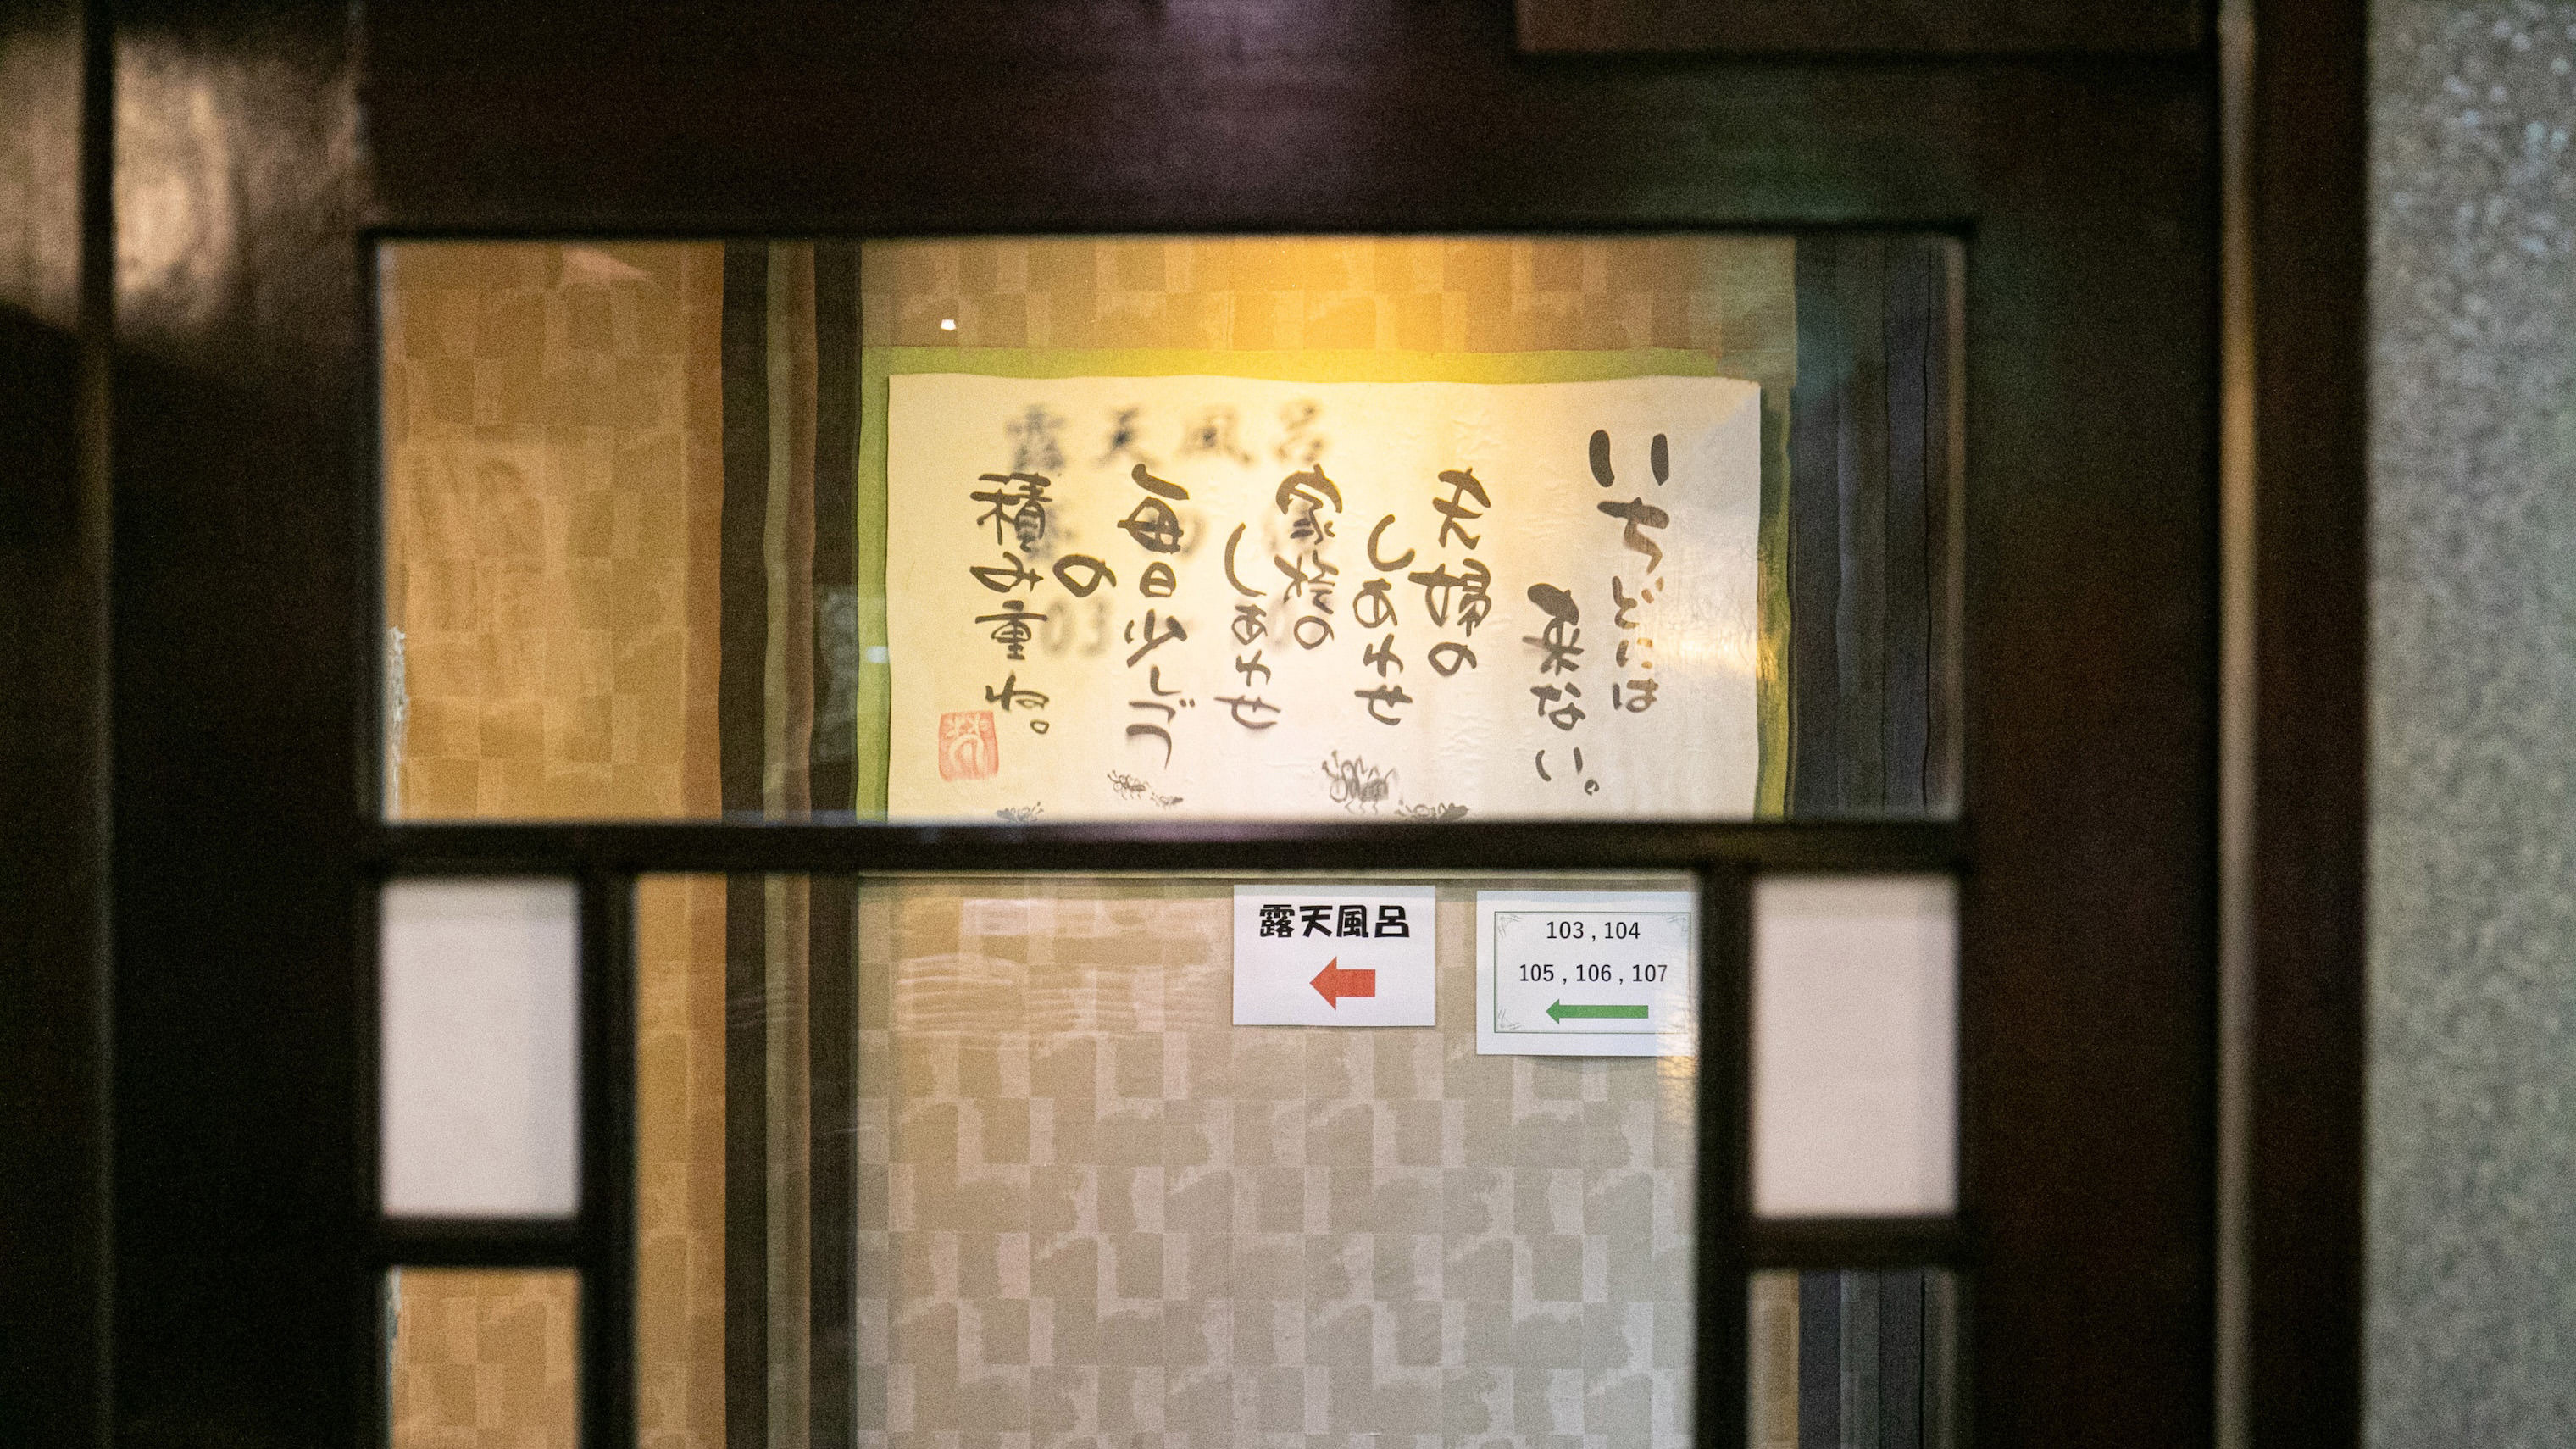 いちどには
来ない。
夫婦の
しあわせ
家族の
しあわせ
毎日少しづつ
の
積み重ね。
露天風呂
露天風呂
103 , 104
105 , 106 , 107